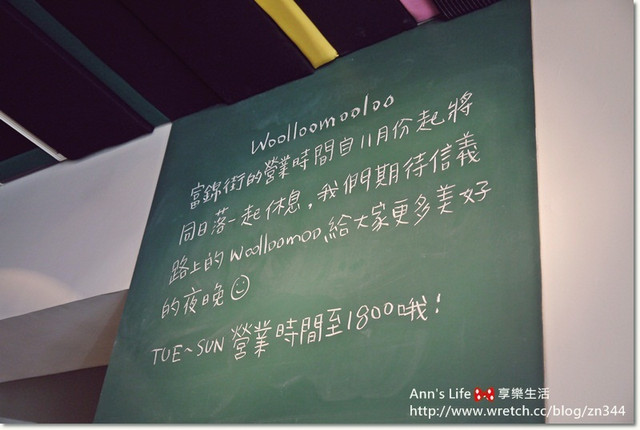 Woolloomooloo
富錦街的營業時間自11月份起將
同日落一起休息，我們期待信義
路上的Woolloomoo給大家更多美好
的夜晚☺
TUE~SUN 營業時間至1800哦！
Ann's Life 享樂生活
http://www.wretch.cc/blog/zn344